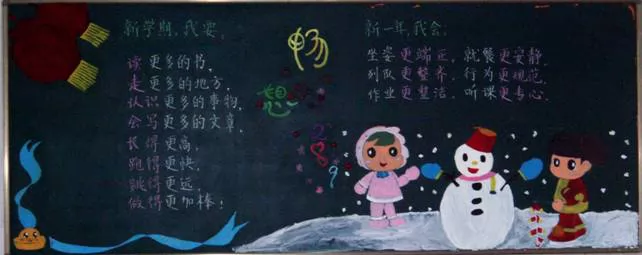 新学期,我要:
读更多的书,
走更多的地方,
认识更多的事物,
会写更多的文章,
长得更高,
跑得更快,
跳得更远,
做得更加棒!
畅
想
2
8
9
新一年,我会:
坐姿更端正,就餐更安静,
列队更整齐,行为更规范,
作业更整洁,听课更专心。